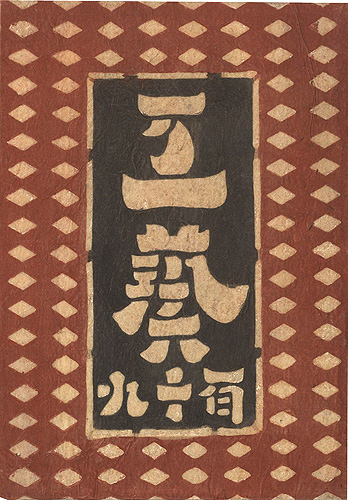 工藝
百十九